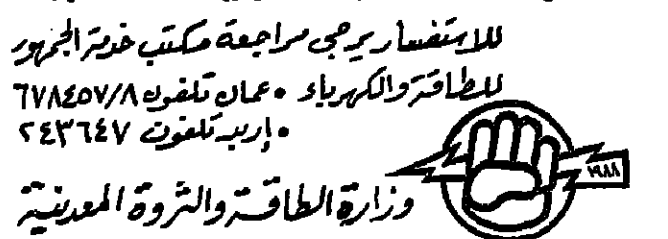 للاستفسار يرجى مراجعة مكتب خدمة الجمهور
للطاقة والكهرباء • عمان تلفون ٦٧٨٤٥٧/٨
• إربد تلفون ٢٤٣٦٤٧
١٩٨٨
وزارة الطاقة والثروة المعدنية